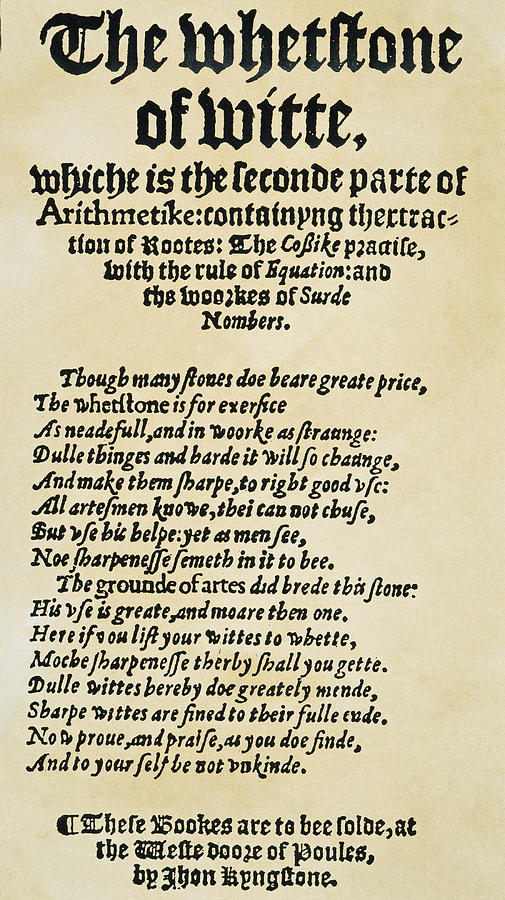 The whetſtone
of witte,
whiche is the ſeconde parte of
Arithmetike: containyng thextrac-
tion of Rootes: The Coßike practiſe,
with the rule of Equation: and
the woorkes of Surde
Nombers.
Though many ſtones doe beare greate price,
The whetſtone is for exerſice
As neadefull, and in woorke as ſtraunge:
Dulle thinges and harde it will ſo chaunge,
And make them ſharpe, to right good vſe:
All arteſmen knowe, thei can not chuſe,
But vſe his helpe: yet as men ſee,
Noe ſharpeneſſe ſemeth in it to bee.
The grounde of artes did brede this ſtone:
His vſe is greate, and moare then one.
Here if you liſt your wittes to whette,
Moche ſharpeneſſe therby ſhall you gette.
Dulle wittes hereby doe greately mende,
Sharpe wittes are fined to their fulle ende.
Now proue, and praiſe, as you doe finde,
And to your ſelf be not vnkinde.
¶ Theſe Bookes are to bee ſolde, at
the Weſte doore of Poules,
by Jhon Kyngſtone.